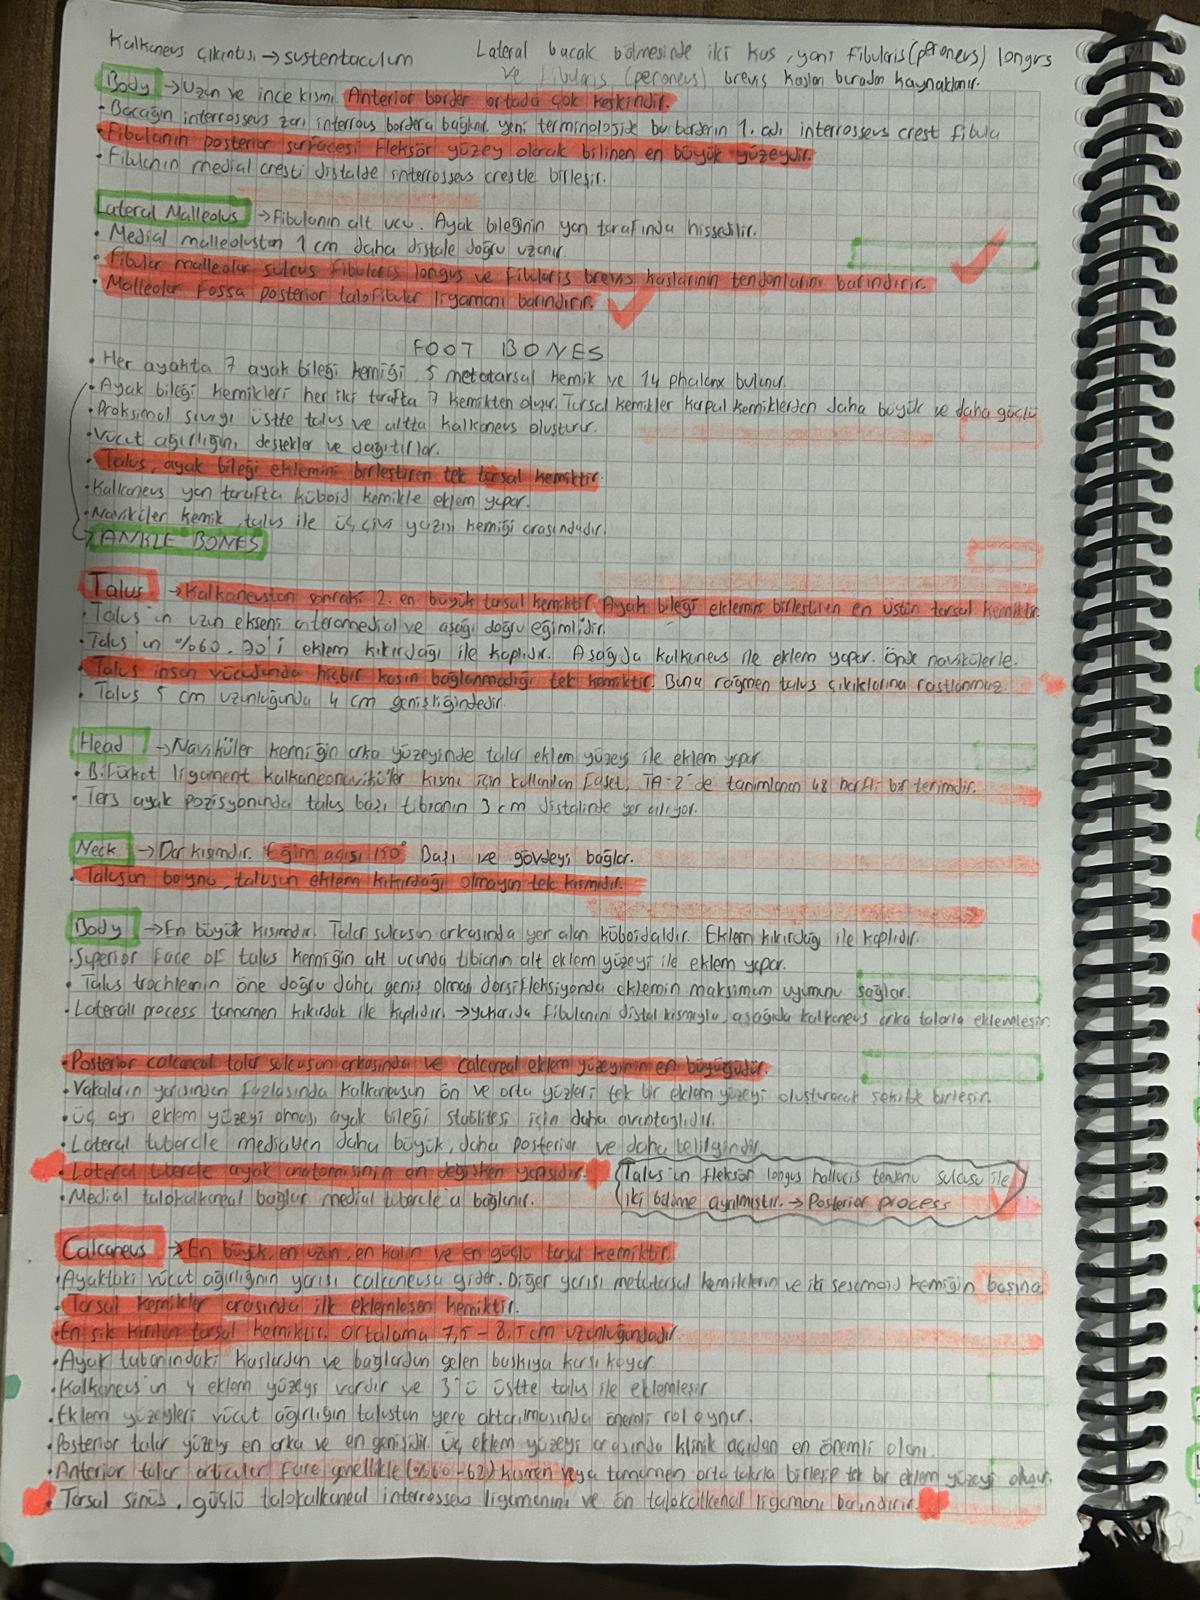 Kalkaneus çıkıntısı → sustentaculum
Lateral bacak bölmesinde iki kas, yani fibularis (peroneus) longus
ve fibularis (peroneus) brevis kasları buradan kaynaklanır.
Body → Uzun ve ince kısmı. Anterior border ortada çok keskindir.
• Bacağın interrosseus zarı interrous bordera bağlanır. yeni terminolojide bu borderın 1. adı interrosseus crest fibula
• Fibulanın posterior surfacesi fleksör yüzey olarak bilinen en büyük yüzeydir.
• Fibulanın medial cresti distalde interrosseus crestle birleşir.
Lateral Malleolus → Fibulanın alt ucu. Ayak bileğinin yan tarafında hissedilir.
• Medial malleolustan 1 cm daha distale doğru uzanır.
• Fibular malleolar sulcus fibularis longus ve fibularis brevis kaslarının tendonlarını barındırır.
• Malleolar fossa posterior talofibular ligamanı barındırır.
FOOT BONES
• Her ayakta 7 ayak bileği kemiği, 5 metatarsal kemik ve 14 phalanx bulunur.
• Ayak bileği kemikleri her iki tarafta 7 kemikten oluşur. Tarsal kemikler karpal kemiklerden daha büyük ve daha güçlü
• Proksimal sırayı üstte talus ve altta kalkaneus oluşturur.
• Vücut ağırlığını destekler ve dağıtırlar.
• Talus, ayak bileği eklemini birleştiren tek tarsal kemiktir.
• Kalkaneus yan tarafta küboid kemikle eklem yapar.
• Naviküler kemik, talus ile üç çivi yazısı kemiği arasındadır.
→ ANKLE BONES
Talus → Kalkaneustan sonraki 2. en büyük tarsal kemiktir. Ayak bileği eklemini birleştiren en üstün tarsal kemiktir.
• Talus'ın uzun ekseni anteromedial ve aşağı doğru eğimlidir.
• Talus'ın %60-70'i eklem kıkırdağı ile kaplıdır. Aşağıda kalkaneus ile eklem yapar. Önde navikülerle.
• Talus insan vücudunda hiçbir kasın bağlanmadığı tek kemiktir. Buna rağmen talus çıkıklarına rastlanmaz.
• Talus 5 cm uzunluğunda 4 cm genişliğindedir.
Head → Naviküler kemiğin arka yüzeyinde talar eklem yüzeyi ile eklem yapar
• Bifurkat ligament kalkaneonaviküler kısmı için kullanılan faset, TA-2'de tanımlanan 48 harfli bir terimdir.
• Ters ayak pozisyonunda talus başı tibianın 3 cm distalinde yer alıyor.
Neck → Dar kısımdır. Eğim açısı 150° Başı ve gövdeyi bağlar.
• Talusun boynu, talusun eklem kıkırdağı olmayan tek kısmıdır.
Body → En büyük kısımdır. Talar sulcusun arkasında yer alan küboidaldır. Eklem kıkırdağı ile kaplıdır.
• Superior face of talus kemiğin alt ucunda tibianın alt eklem yüzeyi ile eklem yapar.
• Talus trochlearın öne doğru daha geniş olması dorsifleksiyonda eklemin maksimum uyumunu sağlar.
• Laterall process tamamen kıkırdak ile kaplıdır. → yukarıda fibulanın distal kısmıyla, aşağıda kalkaneus arka talarla eklemleşir.
• Posterior calcaneal talar sulcusun arkasında ve calcaneal eklem yüzeyinin en büyüğüdür.
• Vakaların yarısından fazlasında kalkaneusun ön ve orta yüzleri tek bir eklem yüzeyi oluşturacak şekilde birleşir.
• Üç ayrı eklem yüzeyi olması ayak bileği stabilitesi için daha avantajlıdır.
• Lateral tubercle medialden daha büyük, daha posterior ve daha belirgindir
• Lateral tubercle ayak anatomisinin en değişken yapısıdır.
• Medial talokalkaneal bağlar medial tubercle'a bağlanır.
Talus'ın fleksör longus hallucis tendonu sulcusu ile
iki bölüme ayrılmıştır. → Posterior process
Calcaneus → En büyük, en uzun, en kalın ve en güçlü tarsal kemiktir.
• Ayaktaki vücut ağırlığının yarısı calcaneusa gider. Diğer yarısı metatarsal kemiklerin ve iki sesamoid kemiğin başına
• Tarsal kemikler arasında ilk eklemleşen kemiktir.
• En sık kırılan tarsal kemiktir. Ortalama 7,5 - 8,5 cm uzunluğundadır.
• Ayak tabanındaki kaslardan ve bağlardan gelen baskıya karşı koyar
• Kalkaneus'ın 4 eklem yüzeyi vardır ve 3'ü üstte talus ile eklemleşir
• Eklem yüzeyleri vücut ağırlığın talustan yere aktarılmasında önemli rol oynar.
• Posterior talar yüzey en arka ve en genişidir. Üç eklem yüzeyi arasında klinik açıdan en önemli olanı.
• Anterior talar articular face genellikle (%60-62) kısmen veya tamamen orta talarla birleşip tek bir eklem yüzeyi oluşur.
• Tarsal sinüs, güçlü talokalkaneal interrosseus ligamenini ve ön talokalkenal ligamanı barındırır.